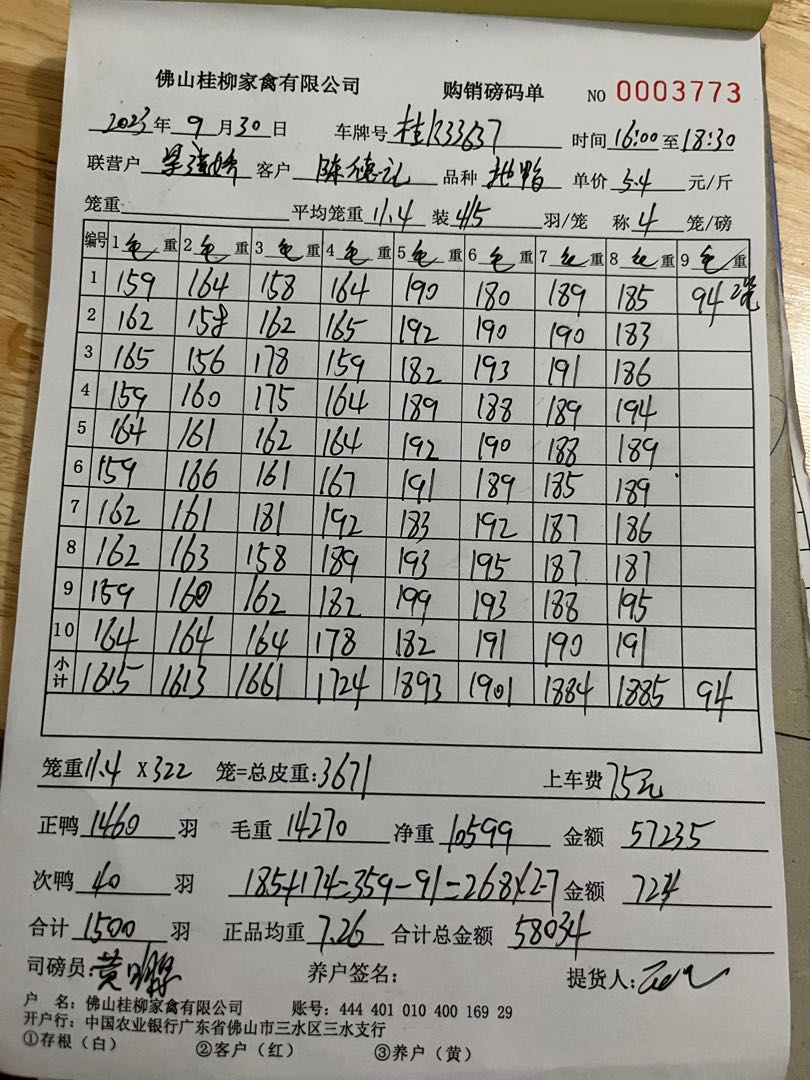 佛山桂柳家禽有限公司 购销磅码单 NO 0003773
2023年 9 月 30 日 车牌号 桂K33637 时间 16:00 至 18:30
联营户 客户 陈德礼 品种 单价 5.4 元/斤
笼重: 平均笼重 11.4 装 4/5 羽/笼 称 4 笼/磅
编号 1 毛 重 2 毛 重 3 毛 重 4 毛 重 5 毛 重 6 毛 重 7 毛 重 8 毛 重 9 毛 重
1 159 164 158 164 190 180 189 185 94 2笼
2 162 158 162 165 192 190 190 183
3 165 156 178 159 182 193 191 186
4 159 160 175 164 189 188 189 194
5 164 161 162 164 192 190 188 189
6 159 166 161 167 191 189 185 189
7 162 161 181 192 183 192 187 186
8 162 163 158 189 193 195 187 187
9 159 160 162 182 199 193 188 195
10 164 164 164 178 182 191 190 191
小计 1615 1613 1661 1724 1893 1901 1884 1885 94
笼重 11.4 X 322 笼=总皮重: 3671 上车费 75元
正鸭 1460 羽 毛重 14270 净重 10599 金额 57235
次鸭 40 羽 185+174=359-91=268×2.7 金额 724
合计 1500 羽 正品均重 7.26 合计总金额 58034
司磅员: 养户签名: 提货人:
户 名: 佛山桂柳家禽有限公司 账号: 444 401 010 400 169 29
开户行: 中国农业银行广东省佛山市三水区三水支行
①存根(白) ②客户(红) ③养户(黄)